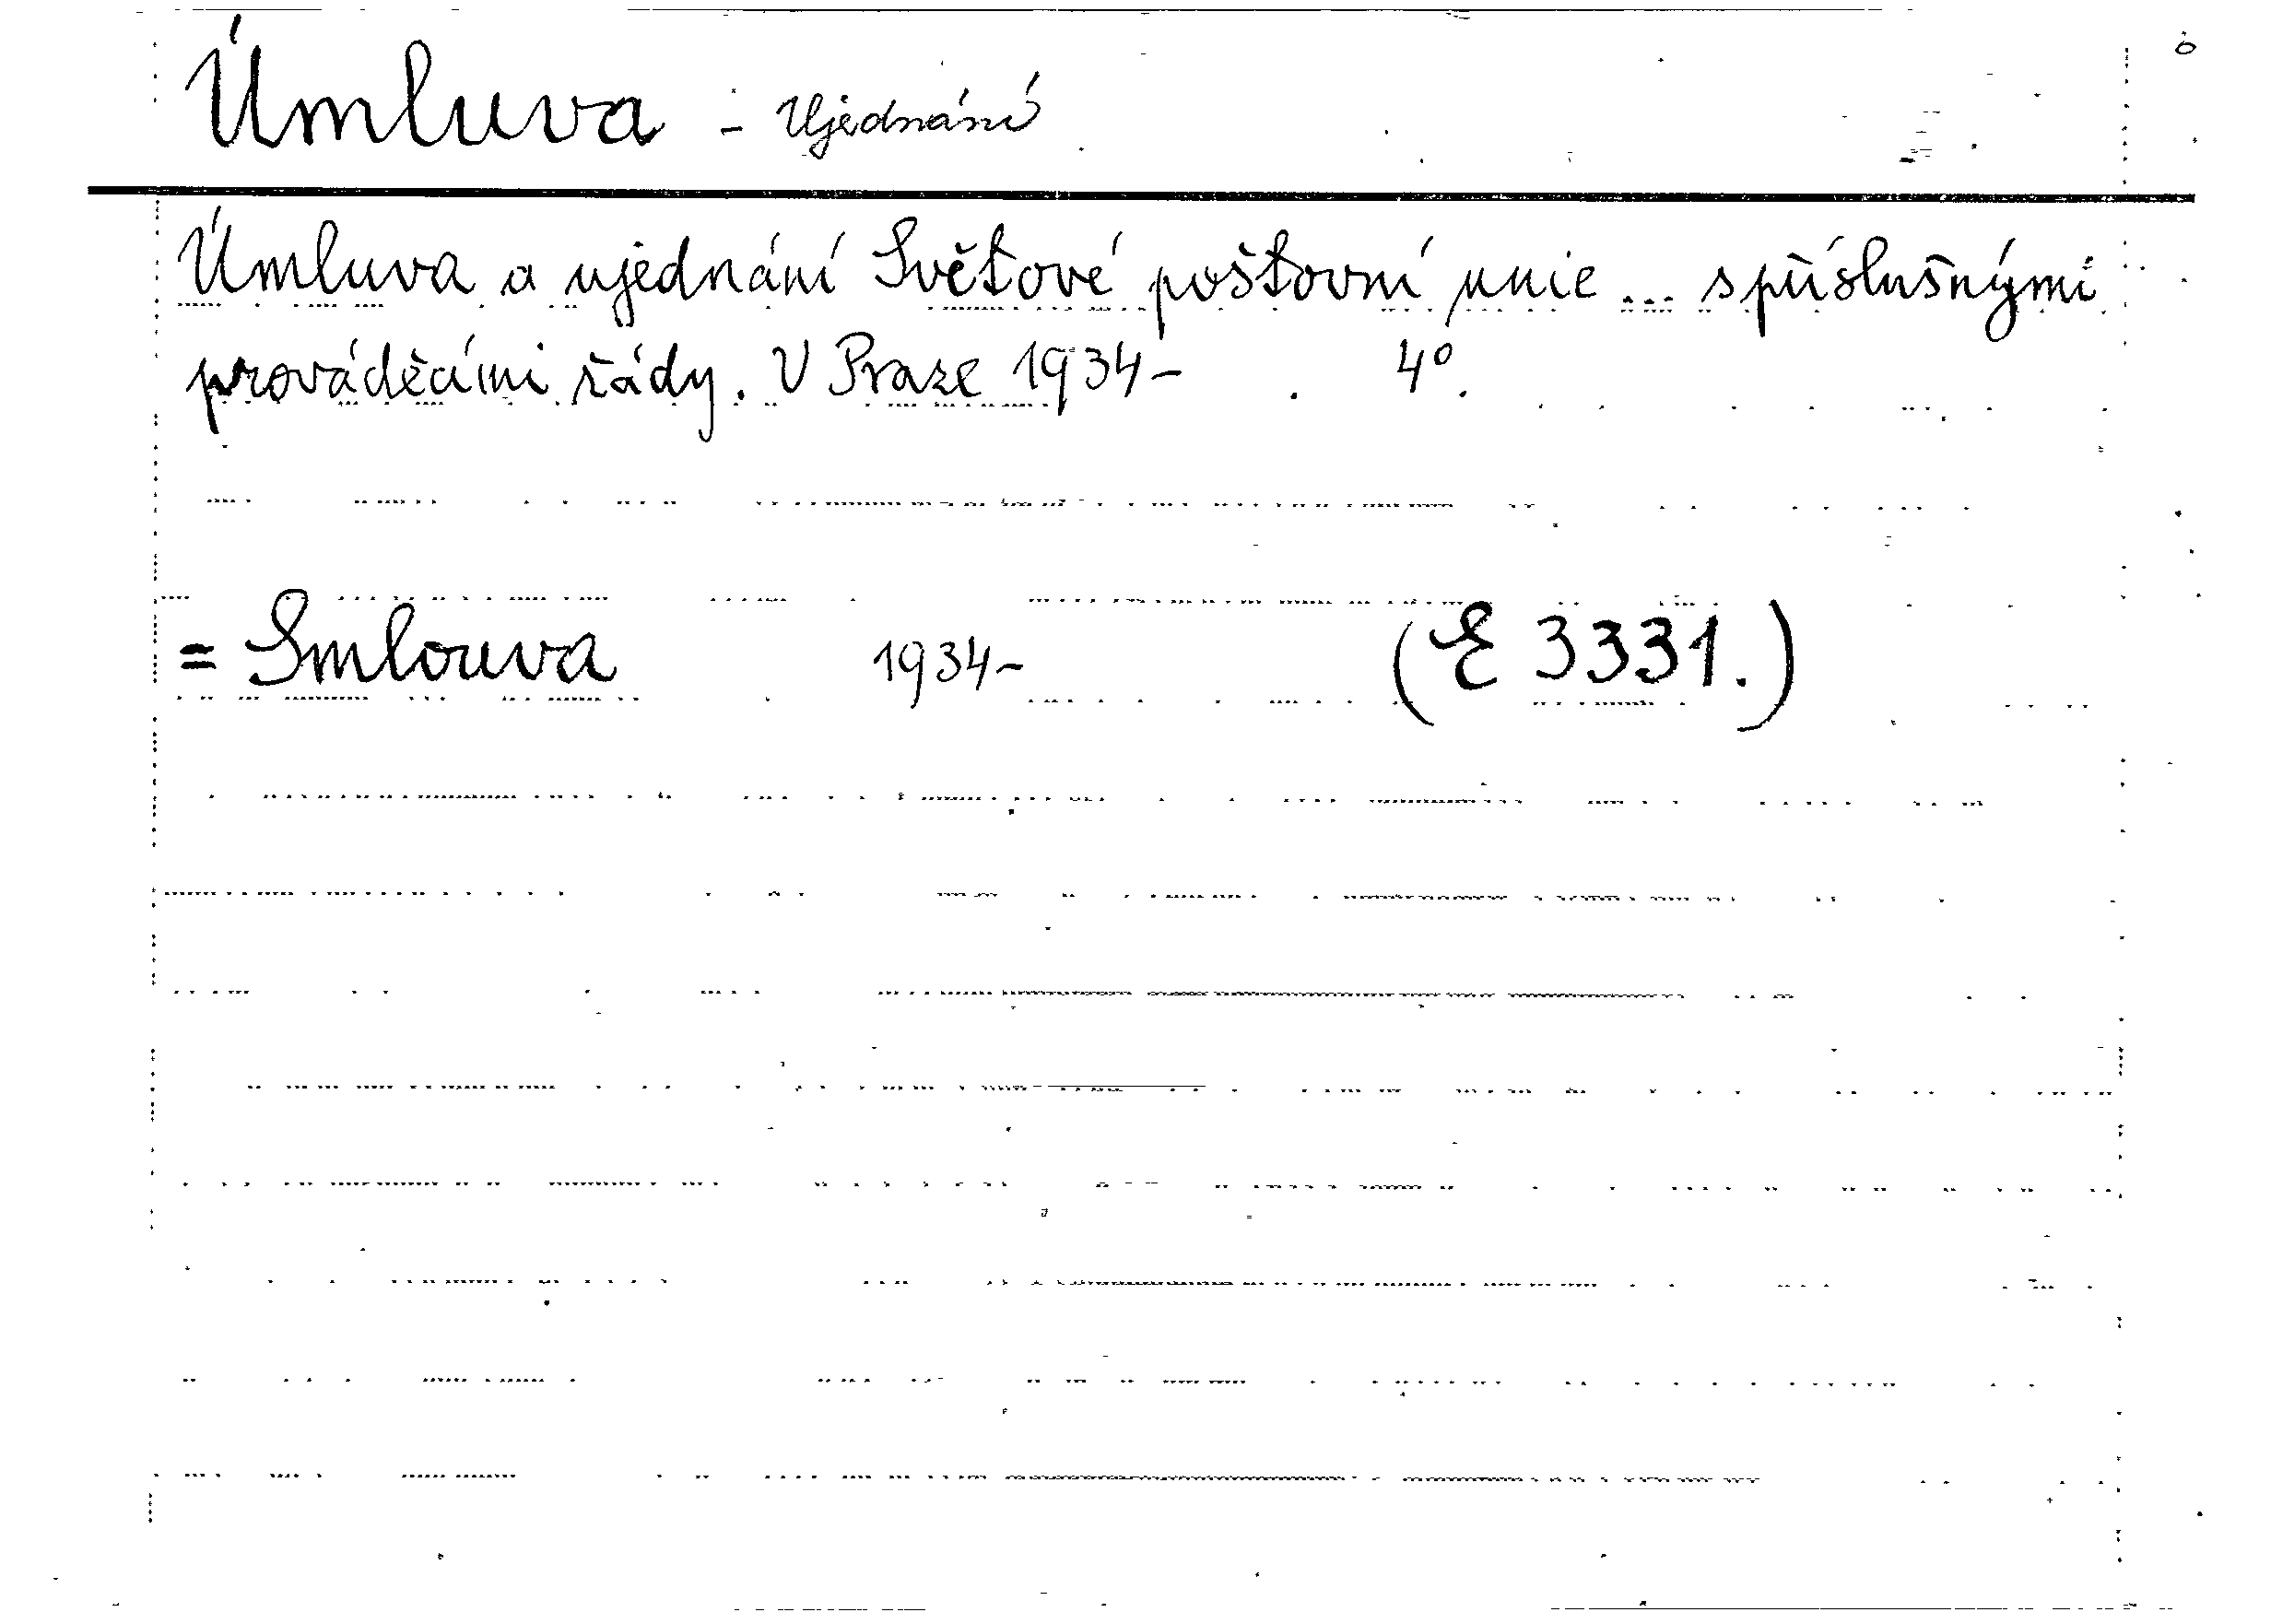 Úmluva - Ujednání
Úmluva a ujednání Světové poštovní unie ... s příslušnými
prováděcími řády. V Praze 1934- . 4°.
= Smlouva 1934- (E 3331.)